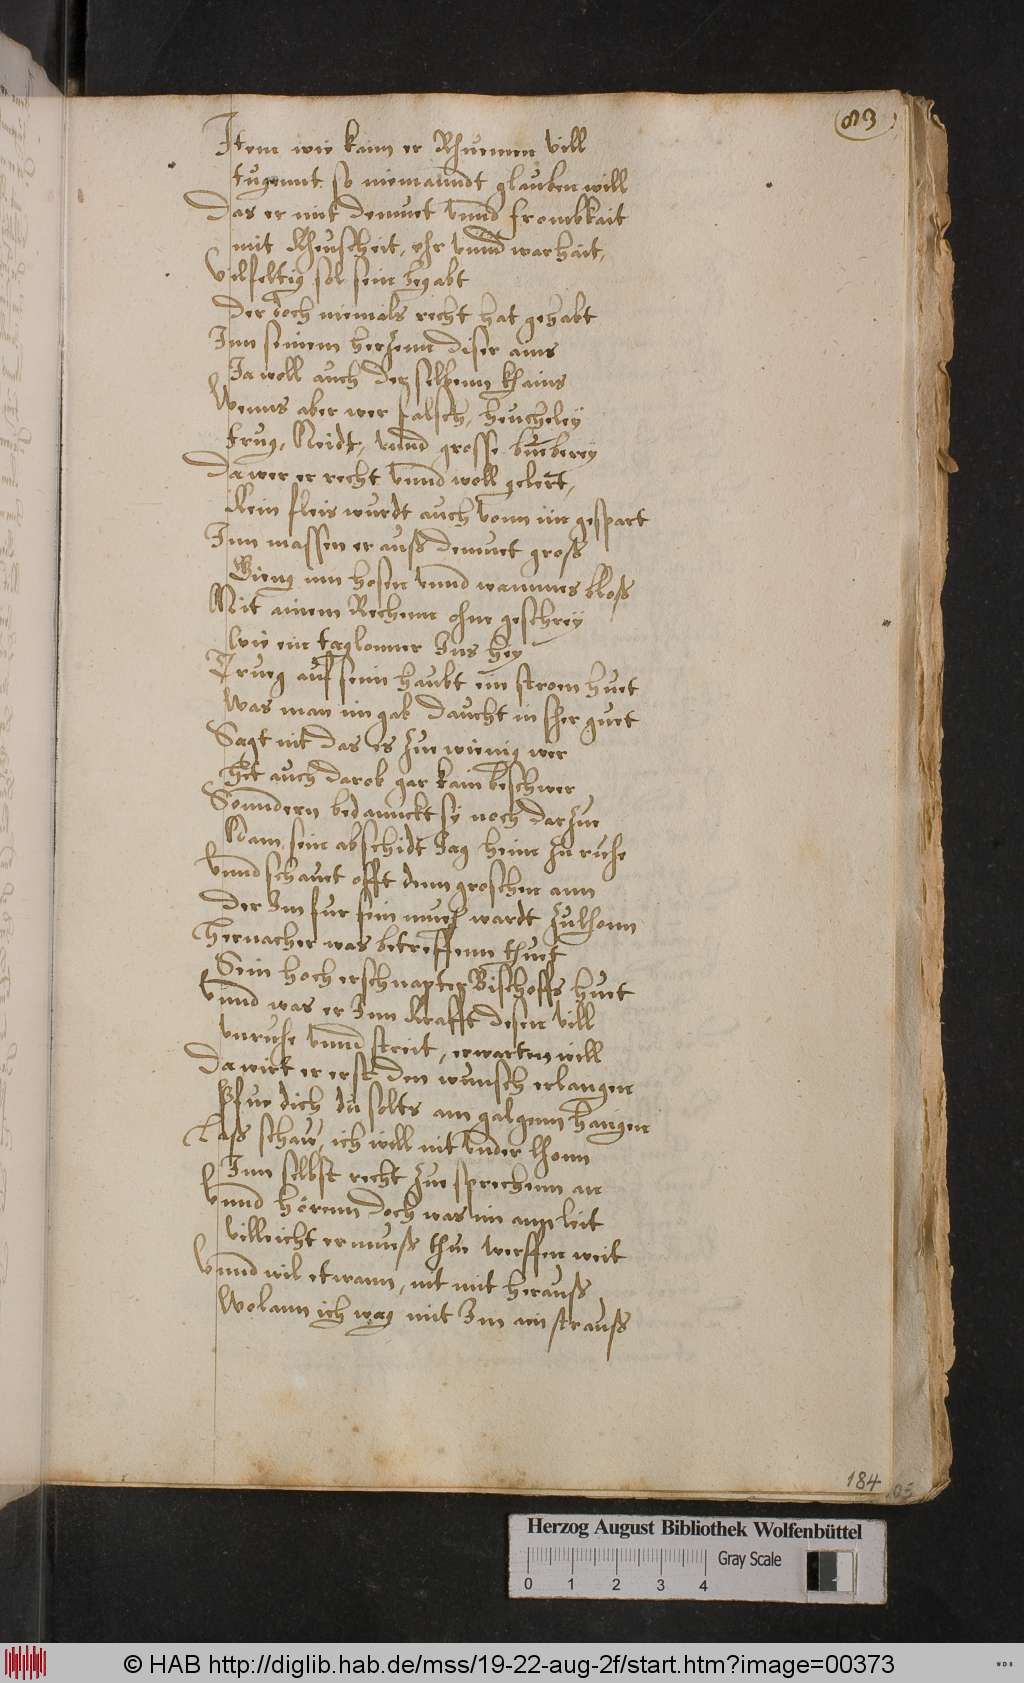 83
Item wie kann er Rhuemen vill
tugennt so niemanndt glauben will
Das er mit demuet vnnd frombkait
mit Kheuscheit, ehr vnnd warhait,
Vilfeltig sol sein begabt
Der doch niemals recht hat gehabt
Inn seinem herzenn diser ains
Ja woll auch derselbenn khains
Wenns aber wer falsch, heucheley
trug, Neidt, vnnd grosse bueberey
Da wer er recht vnnd woll gelert,
Kein fleis wurdt auch vonn im gespart
Inn massen er auss demuet gross
Gieng inn hosen vnnd wammes bloss
Mit ainem Rechenn ohn geschrey
wie ein taglonner Ins hey
Trueg auf seim haubt ein stroen huet
Was man im gab daucht in sher guet
Sagt nit das es zue wienig wer
Het auch darob gar kain beschwer
Sonndern bedannckt sy noch darzue
Nam sein abschidt Zog heim zu ruhe
vnnd schauet offt denn groschen ann
Der Im fur sein mueh wardt zulhonn
Hernacher was betreffenn thuet
Sein hoch erschnapter Bischoffs huet
Vnnd was er Inn Krafft desen vill
vnruhe vnnd streit, erwarten will
Da wirt er erst den wunsch erlangen
Pfue dich du solts am galgenn hangen
Lass schaw, ich will nit vnder lhonn
Inn selbst recht zue sprechenn an
Vnnd hörenn doch was im ann leit
villeicht er muess thue werffen weit
Vnnd wil etwann, nit mit herauss
Wolann ich wag mit Im ain strauss
184
Herzog August Bibliothek Wolfenbüttel
Gray Scale
0 1 2 3 4
© HAB http://diglib.hab.de/mss/19-22-aug-2f/start.htm?image=00373